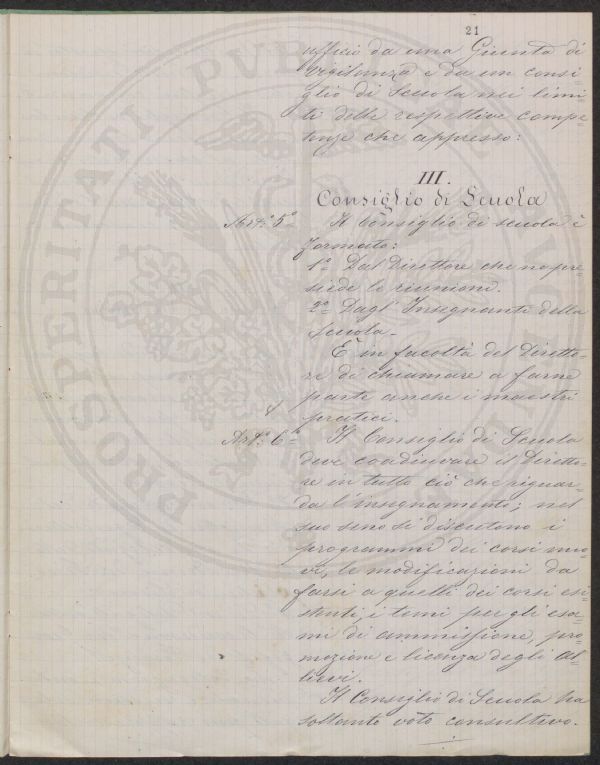 21
ufficio da una Giunta di
vigilanza e da un consi=
glio di Scuola nei limi=
ti delle respettive compe=
tenze che appresso:
III.
Consiglio di Scuola
Art.º 5º Il Consiglio di scuola è
formato:
1º Dal Direttore che ne pre=
siede le riunioni.
2º Dagl' Insegnanti della
Scuola.
È in facoltà del Diretto=
re di chiamare a farne
parte anche i maestri
pratici.
Art.º 6º Il Consiglio di Scuola
deve coadiuvare il Diretto=
re in tutto ciò che riguar=
da l'insegnamento; nel
suo seno si discutono i
programmi dei corsi nuo=
vi, le modificazioni da
farsi a quelli dei corsi esi=
stenti, i temi per gli esa=
mi di ammissione, pro=
mozione e licenza degli al=
lievi.
Il Consiglio di Scuola ha
soltanto voto consultivo.
PROSPERITATI PUBLICAE